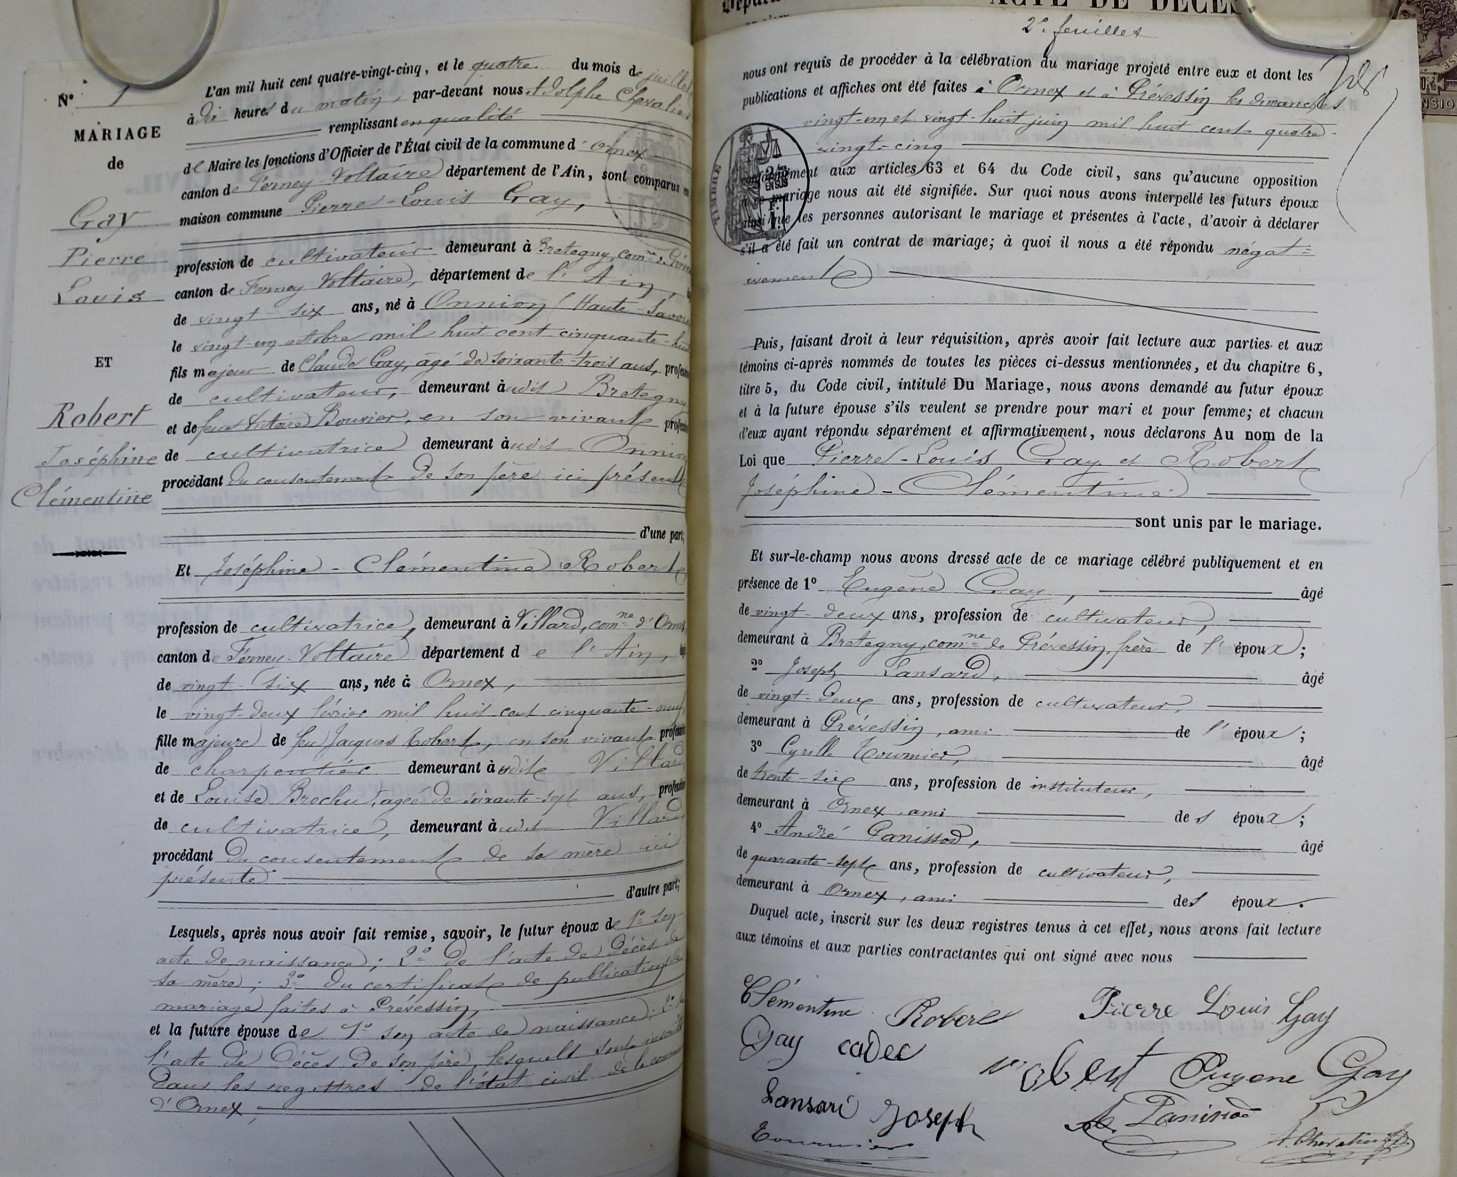 ACTE DE DÉCÈS
N° 7
MARIAGE
de
Gay
Pierre
Louis
ET
Robert
Joséphine
Clémentine
L'an mil huit cent quatre-vingt-cinq, et le quatre du mois de juillet
à dix heures du matin, par-devant nous Adolphe Chevalier
remplissant en qualité
de Maire les fonctions d'Officier de l'État civil de la commune d'Ornex
canton de Ferney-Voltaire département de l'Ain, sont comparus en
maison commune Pierre-Louis Gay,
profession de cultivateur demeurant à Bretegny, comne de
canton de Ferney Voltaire, département de l'Ain,
de vingt-six ans, né à Onnion (Haute-Savoie
le vingt-un octobre mil huit cent cinquante-huit
fils majeur de Claude Gay, âgé de soixante-trois ans, profession
de cultivateur, demeurant audit Bretegny
et de feue Victoire Bouvier, en son vivant profession
de cultivatrice demeurant audit Onnion
procédant du consentement de son père ici présent
d'une part,
Et Joséphine-Clémentine Robert
profession de cultivatrice, demeurant à Villard, comne d'Ornex
canton de Ferney-Voltaire département de l'Ain,
de vingt-six ans, née à Ornex,
le vingt-deux février mil huit cent cinquante-neuf
fille majeure de feu Jacques Robert, en son vivant profession
de charpentier demeurant audit Villard
et de Louise Brochu, âgée de soixante-sept ans, profession
de cultivatrice, demeurant audit Villard
procédant du consentement de sa mère ici
présente
d'autre part;
Lesquels, après nous avoir fait remise, savoir, le futur époux de 1° son
acte de naissance; 2° de l'acte de décès de
sa mère; 3° du certificat de publications de
mariage faites à Prévessin,
et la future épouse de 1° son acte de naissance; 2° de
l'acte de décès de son père, lesquels sont inscrits
dans les registres de l'état civil de la commune
d'Ornex
2e feuilles
nous ont requis de procéder à la célébration du mariage projeté entre eux et dont les
publications et affiches ont été faites à Ornex et à Prévessin les dimanches
vingt-un et vingt-huit juin mil huit cent quatre-
vingt-cinq
conformément aux articles 63 et 64 du Code civil, sans qu'aucune opposition
au mariage nous ait été signifiée. Sur quoi nous avons interpellé les futurs époux
ainsi que les personnes autorisant le mariage et présentes à l'acte, d'avoir à déclarer
s'il a été fait un contrat de mariage; à quoi il nous a été répondu négat=
ivement
Puis, faisant droit à leur réquisition, après avoir fait lecture aux parties et aux
témoins ci-après nommés de toutes les pièces ci-dessus mentionnées, et du chapitre 6,
titre 5, du Code civil, intitulé Du Mariage, nous avons demandé au futur époux
et à la future épouse s'ils veulent se prendre pour mari et pour femme; et chacun
d'eux ayant répondu séparément et affirmativement, nous déclarons Au nom de la
Loi que Pierre-Louis Gay et Robert
Joséphine-Clémentine
sont unis par le mariage.
Et sur-le-champ nous avons dressé acte de ce mariage célébré publiquement et en
présence de 1° Eugène Gay, âgé
de vingt-deux ans, profession de cultivateur,
demeurant à Bretegny, comne de Prévessin, frère de l'époux;
2° Joseph Lansard, âgé
de vingt-deux ans, profession de cultivateur,
demeurant à Prévessin, ami de l'époux;
3° Cyrille Tournier, âgé
de trente-six ans, profession de instituteur,
demeurant à Ornex, ami des époux;
4° André Panissod, âgé
de quarante-sept ans, profession de cultivateur,
demeurant à Ornex, ami des époux.
Duquel acte, inscrit sur les deux registres tenus à cet effet, nous avons fait lecture
aux témoins et aux parties contractantes qui ont signé avec nous
Clémentine Robert Pierre Louis Gay
Gay Eugene Gay
Lansard Joseph Panissod
Tournier A. Chevalier